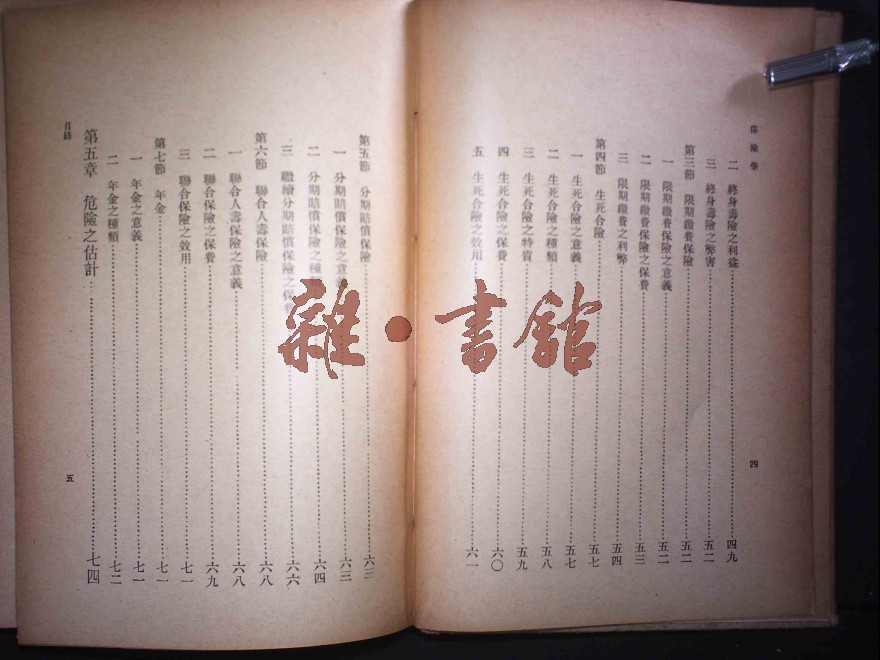 保險學
二 終身壽險之利益 四九
三 終身壽險之弊害 五二
第三節 限期繳費保險 五二
一 限期繳費保險之意義 五二
二 限期繳費保險之保費 五三
三 限期繳費之利弊 五四
第四節 生死合險 五七
一 生死合險之意義 五七
二 生死合險之種類 五八
三 生死合險之特質 五九
四 生死合險之保費 六〇
五 生死合險之效用 六一
四
第五節 分期賠償保險 六三
一 分期賠償保險之意義 六三
二 分期賠償保險之種類 六四
三 繼續分期賠償保險之保費 六六
第六節 聯合人壽保險 六八
一 聯合人壽保險之意義 六八
二 聯合保險之保費 六九
三 聯合保險之效用 七一
第七節 年金 七一
一 年金之意義 七一
二 年金之種類 七二
第五章 危險之估計 七四
目錄
五
雜·書館